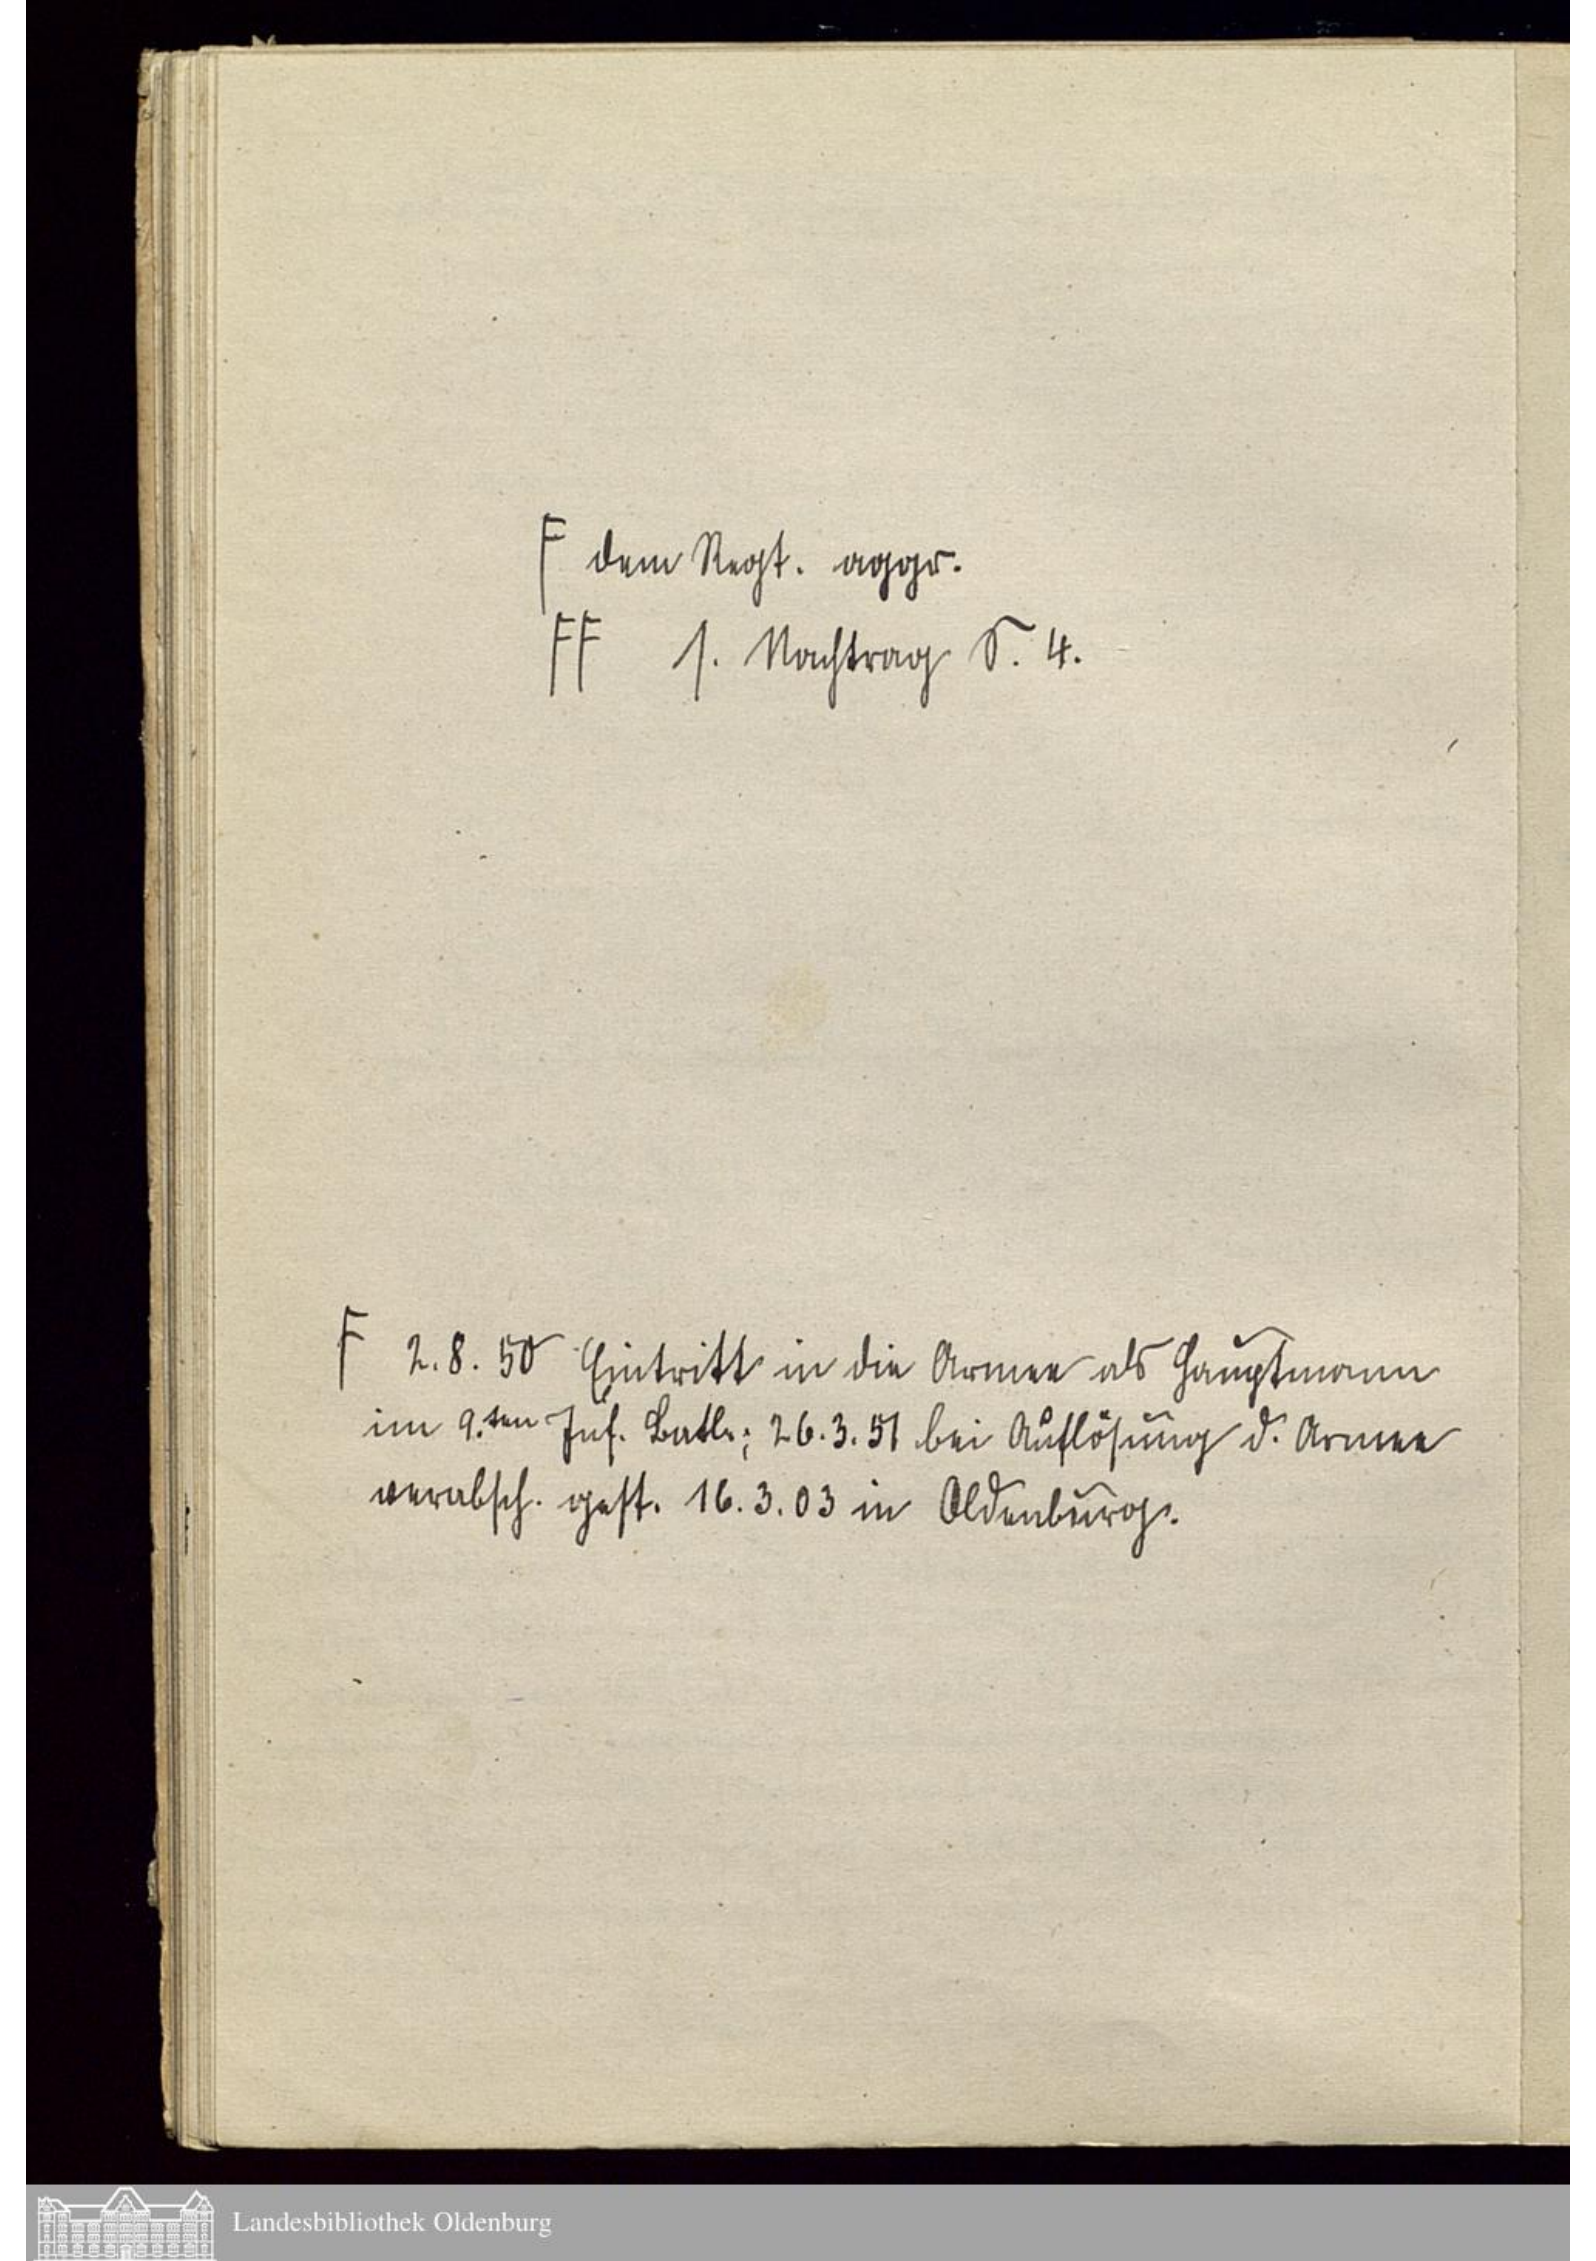 F dem Regt. aggr.
FF s. Nachtrag S. 4.
F 2.8.50 Eintritt in die Armee als Hauptmann
im 9.ten Inf. Batl.; 26.3.51 bei Auflösung d. Armee
verabsch. gest. 16.3.03 in Oldenburg.
Landesbibliothek Oldenburg